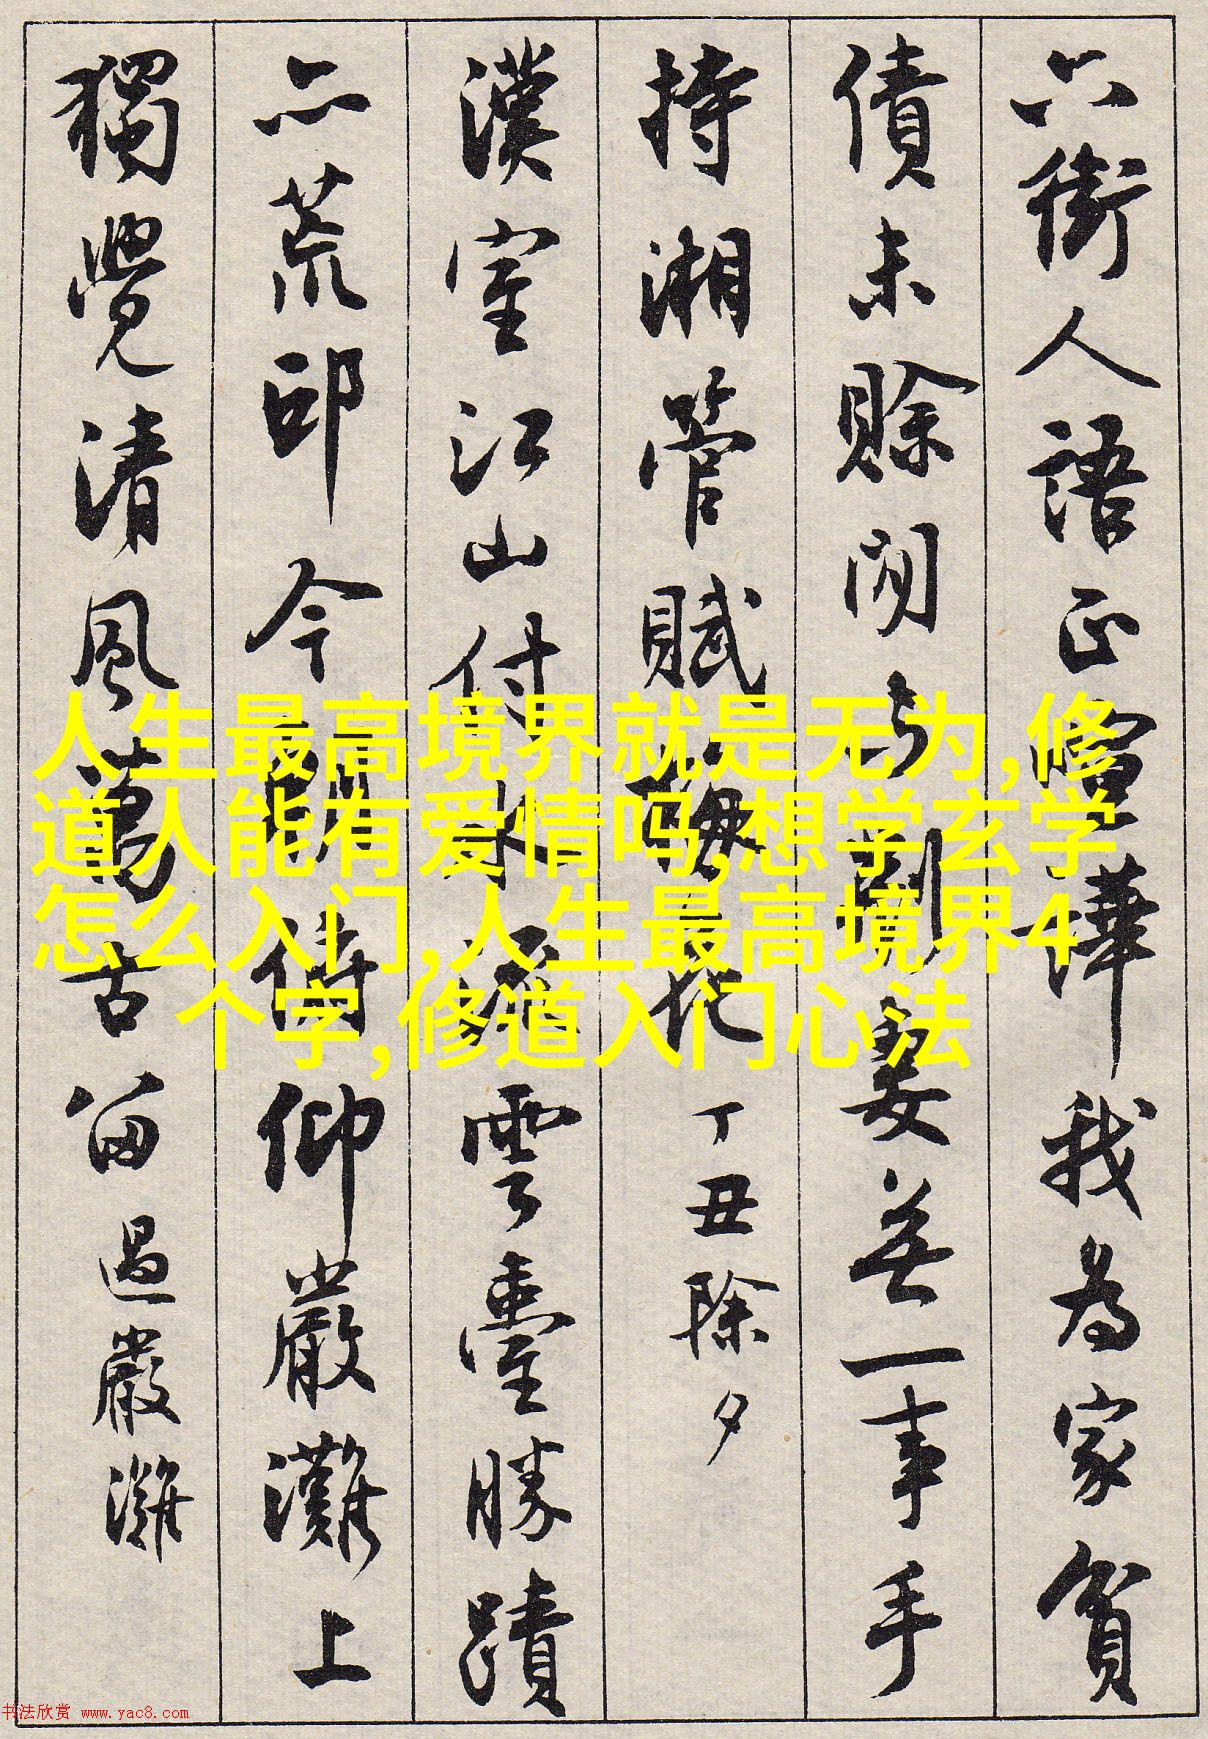 六街人語正喧譁我為家貧
債未賒閒与婁无一事手
持湘管賦梅花 丁丑除夕
漢室江山付水流雲臺勝蹟
亦荒邱今仰嚴灘上
獨覺清風萬古留 過嚴灘
人生最高境界就是无为,修
道人能有爱情吗,想学玄学
怎么入门,人生最高境界4
个字,修道入门心法
书法欣赏 www.yac8.com